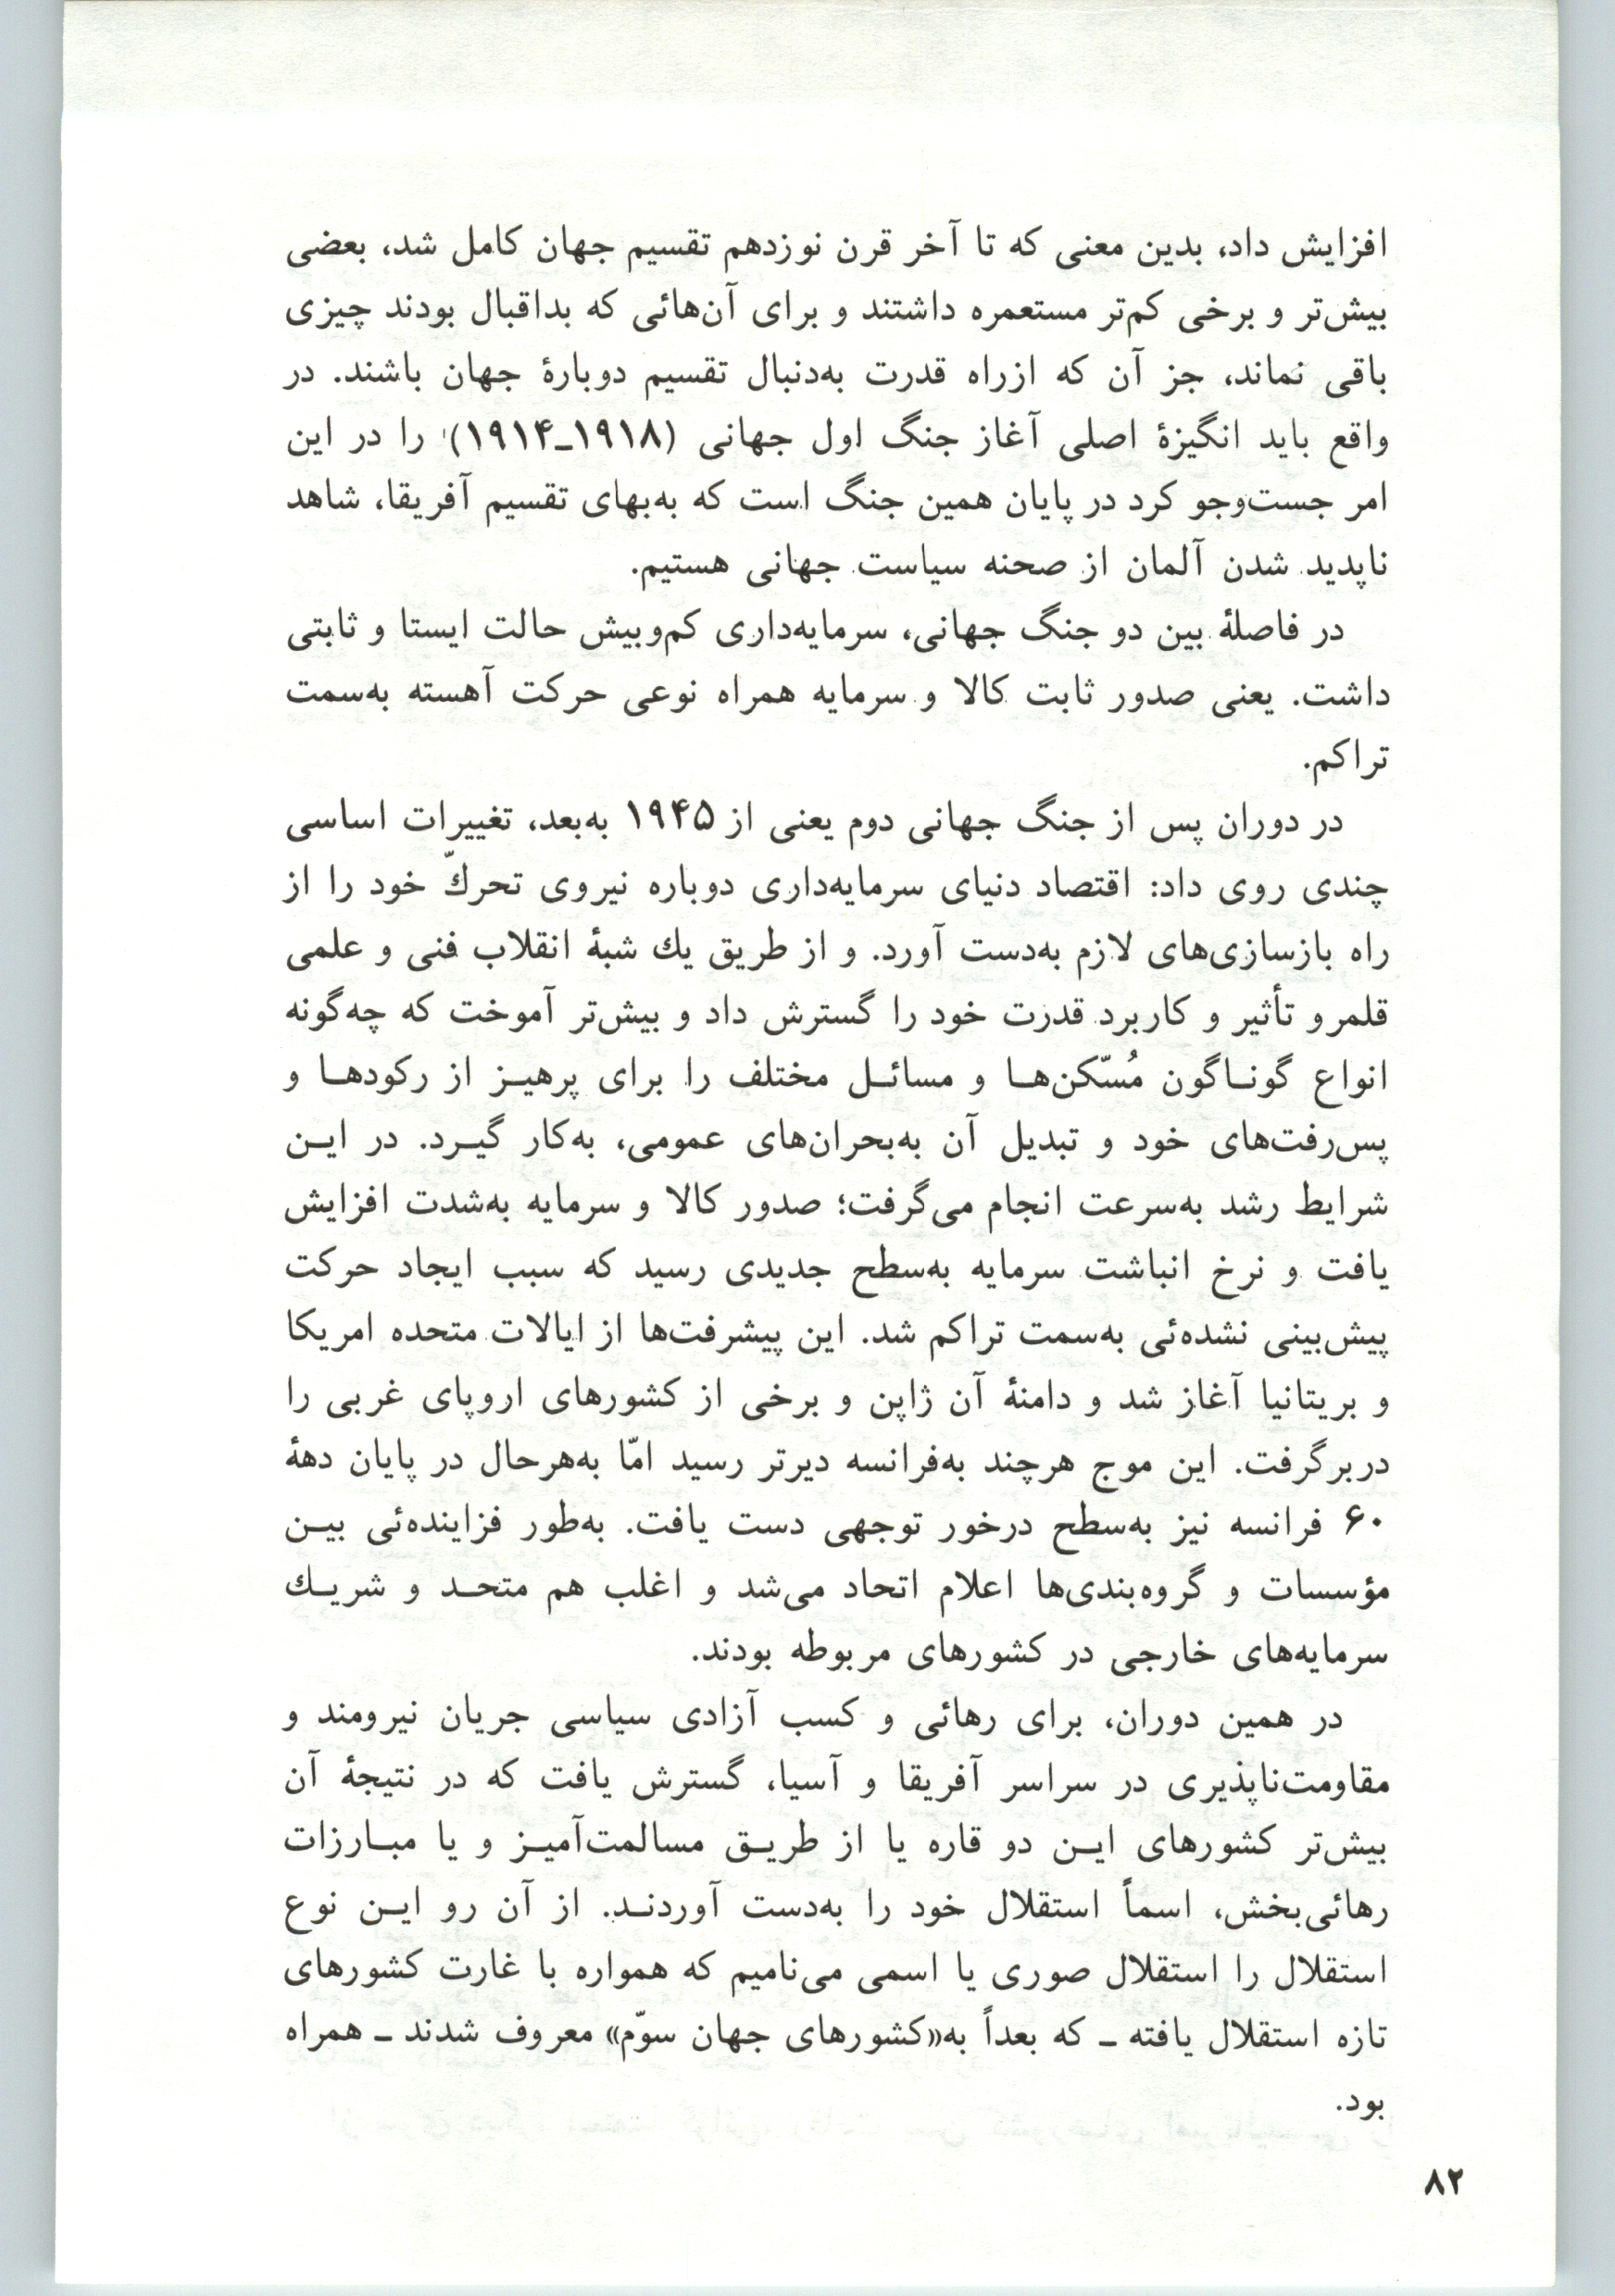 افزایش داد، بدین معنی که تا آخر قرن نوزدهم تقسیم جهان کامل شد، بعضی
بیش‌تر و برخی کم‌تر مستعمره داشتند و برای آن‌هائی که بداقبال بودند چیزی
باقی نماند، جز آن که ازراه قدرت به‌دنبال تقسیم دوبارهٔ جهان باشند. در
واقع باید انگیزهٔ اصلی آغاز جنگ اول جهانی (۱۹۱۸ـ۱۹۱۴) را در این
امر جست‌وجو کرد در پایان همین جنگ است که به‌بهای تقسیم آفریقا، شاهد
ناپدید شدن آلمان از صحنه سیاست جهانی هستیم.
در فاصلهٔ بین دو جنگ جهانی، سرمایه‌داری کم‌وبیش حالت ایستا و ثابتی
داشت. یعنی صدور ثابت کالا و سرمایه همراه نوعی حرکت آهسته به‌سمت
تراکم.
در دوران پس از جنگ جهانی دوم یعنی از ۱۹۴۵ به‌بعد، تغییرات اساسی
چندی روی داد: اقتصاد دنیای سرمایه‌داری دوباره نیروی تحرّك خود را از
راه بازسازی‌های لازم به‌دست آورد. و از طریق یك شبهٔ انقلاب فنی و علمی
قلمرو تأثیر و کاربرد قدرت خود را گسترش داد و بیش‌تر آموخت که چه‌گونه
انواع گونـاگون مُسّکن‌هـا و مسائـل مختلف را برای پرهیـز از رکودهـا و
پس‌رفت‌های خود و تبدیل آن به‌بحران‌های عمومی، به‌کار گیـرد. در ایـن
شرایط رشد به‌سرعت انجام می‌گرفت؛ صدور کالا و سرمایه به‌شدت افزایش
یافت و نرخ انباشت سرمایه به‌سطح جدیدی رسید که سبب ایجاد حرکت
پیش‌بینی نشده‌ئی به‌سمت تراکم شد. این پیشرفت‌ها از ایالات متحده امریکا
و بریتانیا آغاز شد و دامنهٔ آن ژاپن و برخی از کشورهای اروپای غربی را
دربرگرفت. این موج هرچند به‌فرانسه دیرتر رسید امّا به‌هرحال در پایان دههٔ
۶۰ فرانسه نیز به‌سطح درخور توجهی دست یافت. به‌طور فزاینده‌ئی بیـن
مؤسسات و گروه‌بندی‌ها اعلام اتحاد می‌شد و اغلب هم متحـد و شریـك
سرمایه‌های خارجی در کشورهای مربوطه بودند.
در همین دوران، برای رهائی و کسب آزادی سیاسی جریان نیرومند و
مقاومت‌ناپذیری در سراسر آفریقا و آسیا، گسترش یافت که در نتیجهٔ آن
بیش‌تر کشورهای ایـن دو قاره یا از طریـق مسالمت‌آمیـز و یا مبـارزات
رهائی‌بخش، اسماً استقلال خود را به‌دست آوردنـد. از آن رو ایـن نوع
استقلال را استقلال صوری یا اسمی می‌نامیم که همواره با غارت کشورهای
تازه استقلال یافته ـ که بعداً به«کشورهای جهان سوّم» معروف شدند ـ همراه
بود.
۸۲